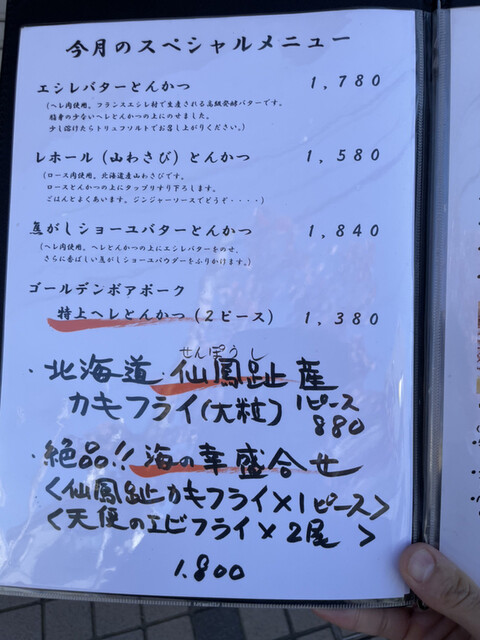 今月のスペシャルメニュー
エシレバターとんかつ 1,780
(ヘレ肉使用。フランスエシレ村で生産される高級発酵バターです。
脂身の少ないヘレとんかつの上にのせました。
少し溶けたらトリュフソルトでお召し上がりください。)
レホール(山わさび)とんかつ 1,580
(ロース肉使用。北海道産山わさびです。
ロースとんかつの上にタップリすり下ろします。
ごはんとよくあいます。ジンジャーソースでどうぞ・・・・)
焦がしショーユバターとんかつ 1,840
(ヘレ肉使用。ヘレとんかつの上にエシレバターをのせ、
さらに香ばしい焦がしショーユパウダーをふりかけます。)
ゴールデンボアポーク
特上ヘレとんかつ(2ピース) 1,380
せんぽうし
・北海道・仙鳳趾産
カキフライ(大粒) 1ピース
880
・絶品!!海の幸盛合せ
<仙鳳趾カキフライ×1ピース>
<天使のエビフライ×2尾>
1.800